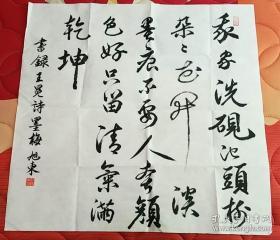 我家洗硯池頭樹
朵朵花開淡
墨痕不要人夸顏
色好只留清氣滿
乾坤
書録王冕詩墨梅 旭東